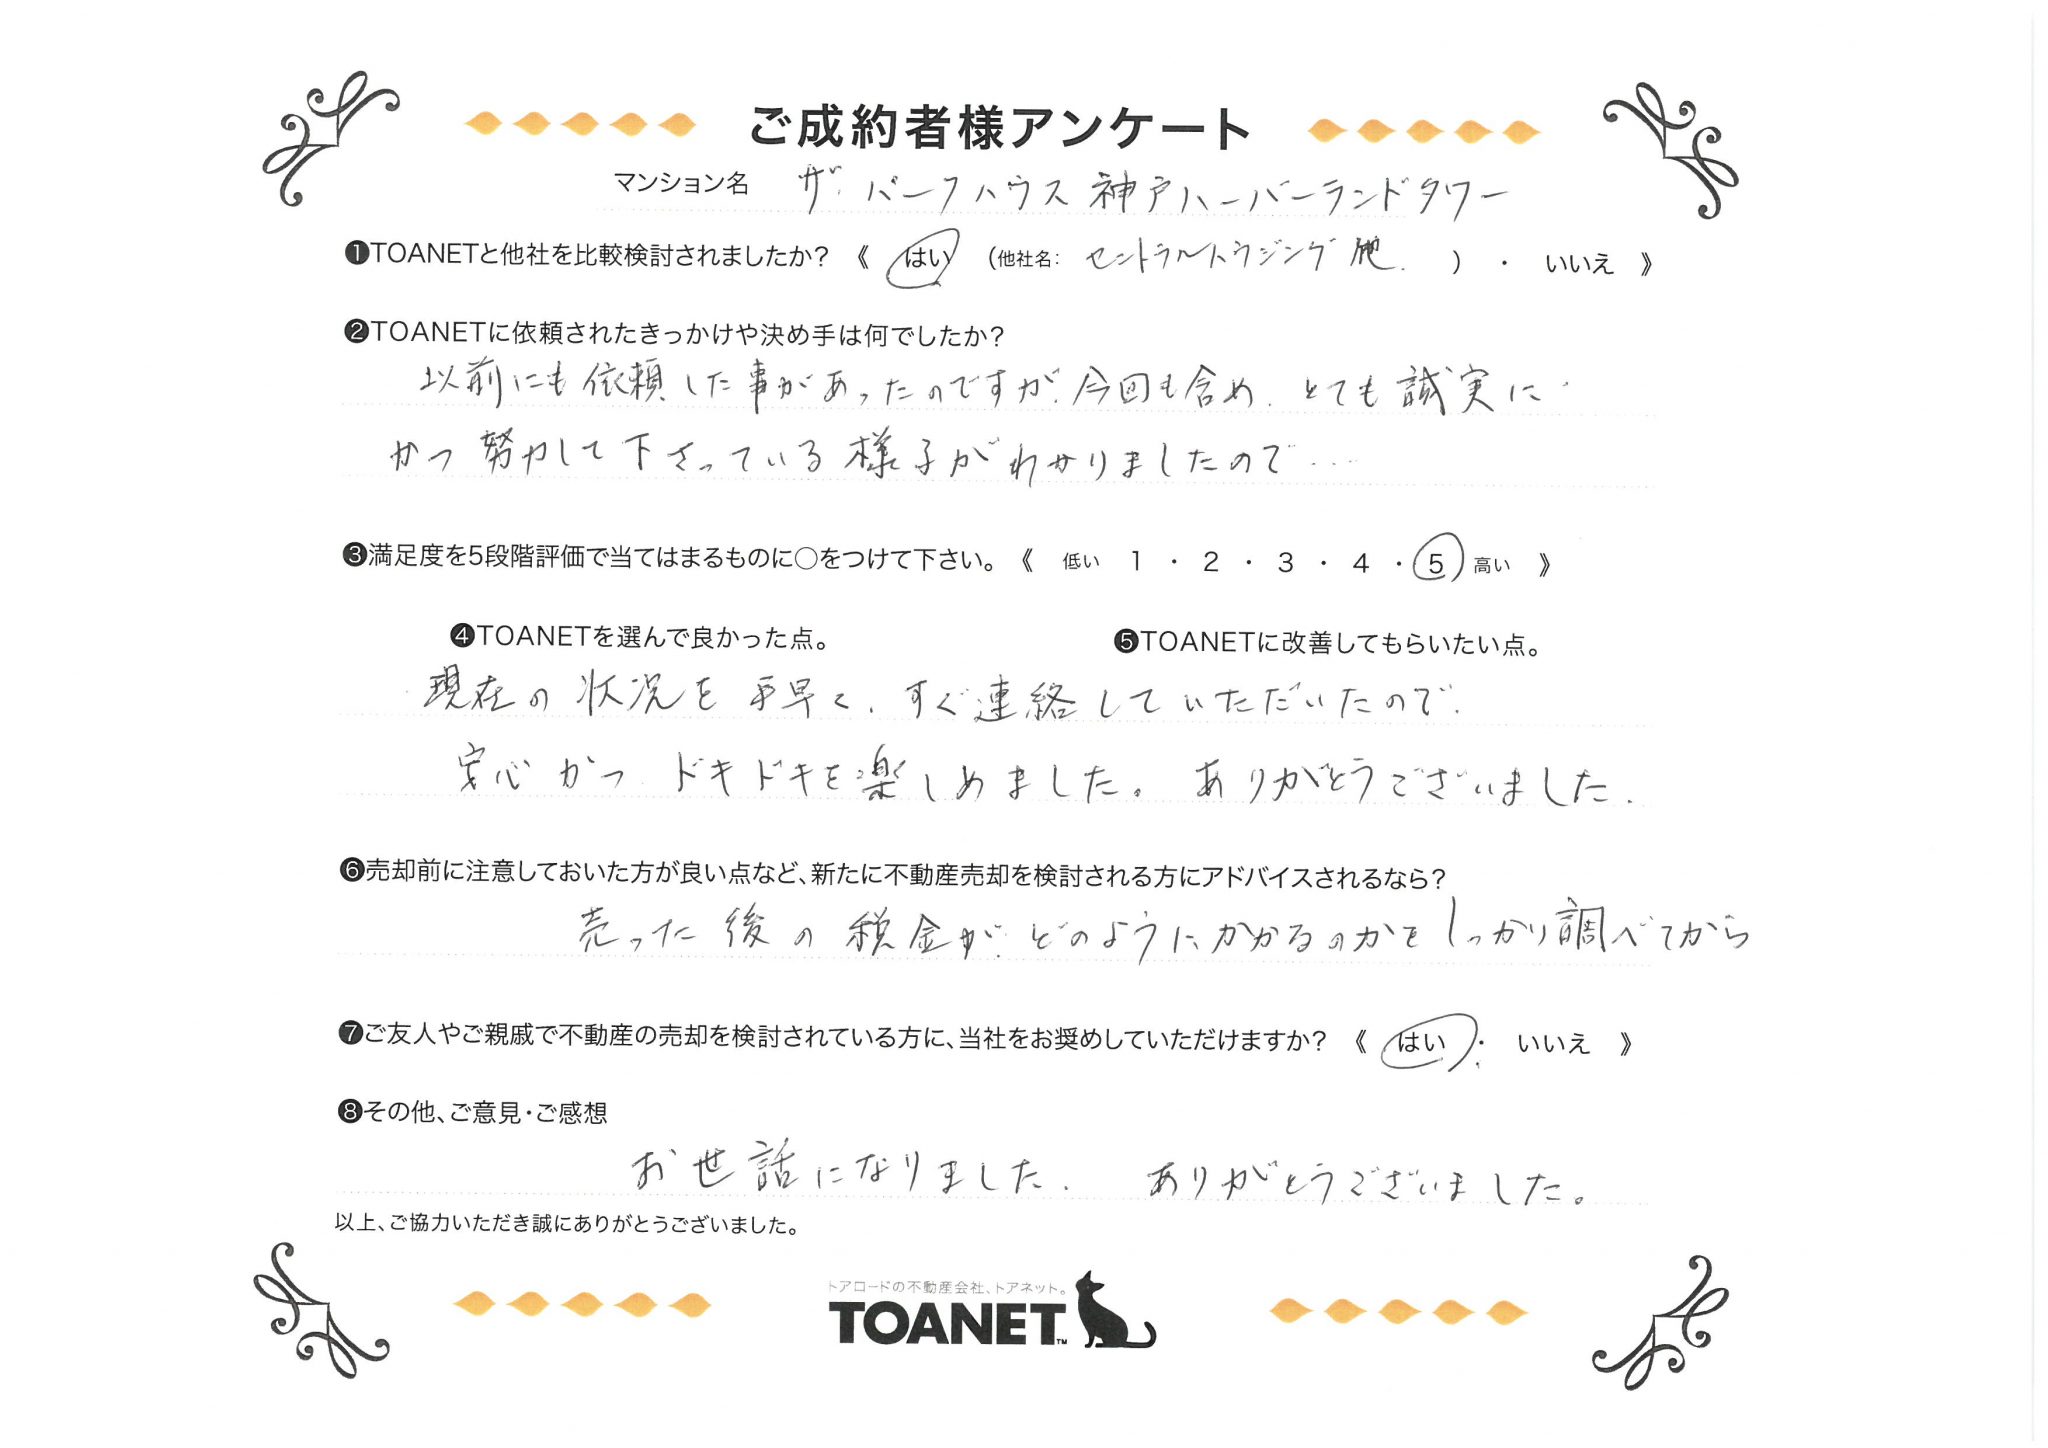 ご成約者様アンケート
マンション名 ザ・パークハウス神戸ハーバーランドタワー
❶TOANETと他社を比較検討されましたか？《 はい (他社名: セントラルトラジング 他. ) ・ いいえ 》
❷TOANETに依頼されたきっかけや決め手は何でしたか？
以前にも依頼した事があったのですが、今回も含め、とても誠実に
かつ努力して下さっている様子がわかりましたので….
❸満足度を5段階評価で当てはまるものに○をつけて下さい。《 低い 1 ・ 2 ・ 3 ・ 4 ・ 5 高い 》
❹TOANETを選んで良かった点。 ❺TOANETに改善してもらいたい点。
現在の状況を手早く、すぐ連絡していただいたので、
安心かつ ドキドキを楽しめました。 ありがとうございました.
❻売却前に注意しておいた方が良い点など、新たに不動産売却を検討される方にアドバイスされるなら？
売った後の税金が、どのようにかかるのかをしっかり調べてから
❼ご友人やご親戚で不動産の売却を検討されている方に、当社をお奨めしていただけますか？《 はい ・ いいえ 》
❽その他、ご意見・ご感想
お世話になりました. ありがとうございました。
以上、ご協力いただき誠にありがとうございました。
トアロードの不動産会社、トアネット。
TOANET™